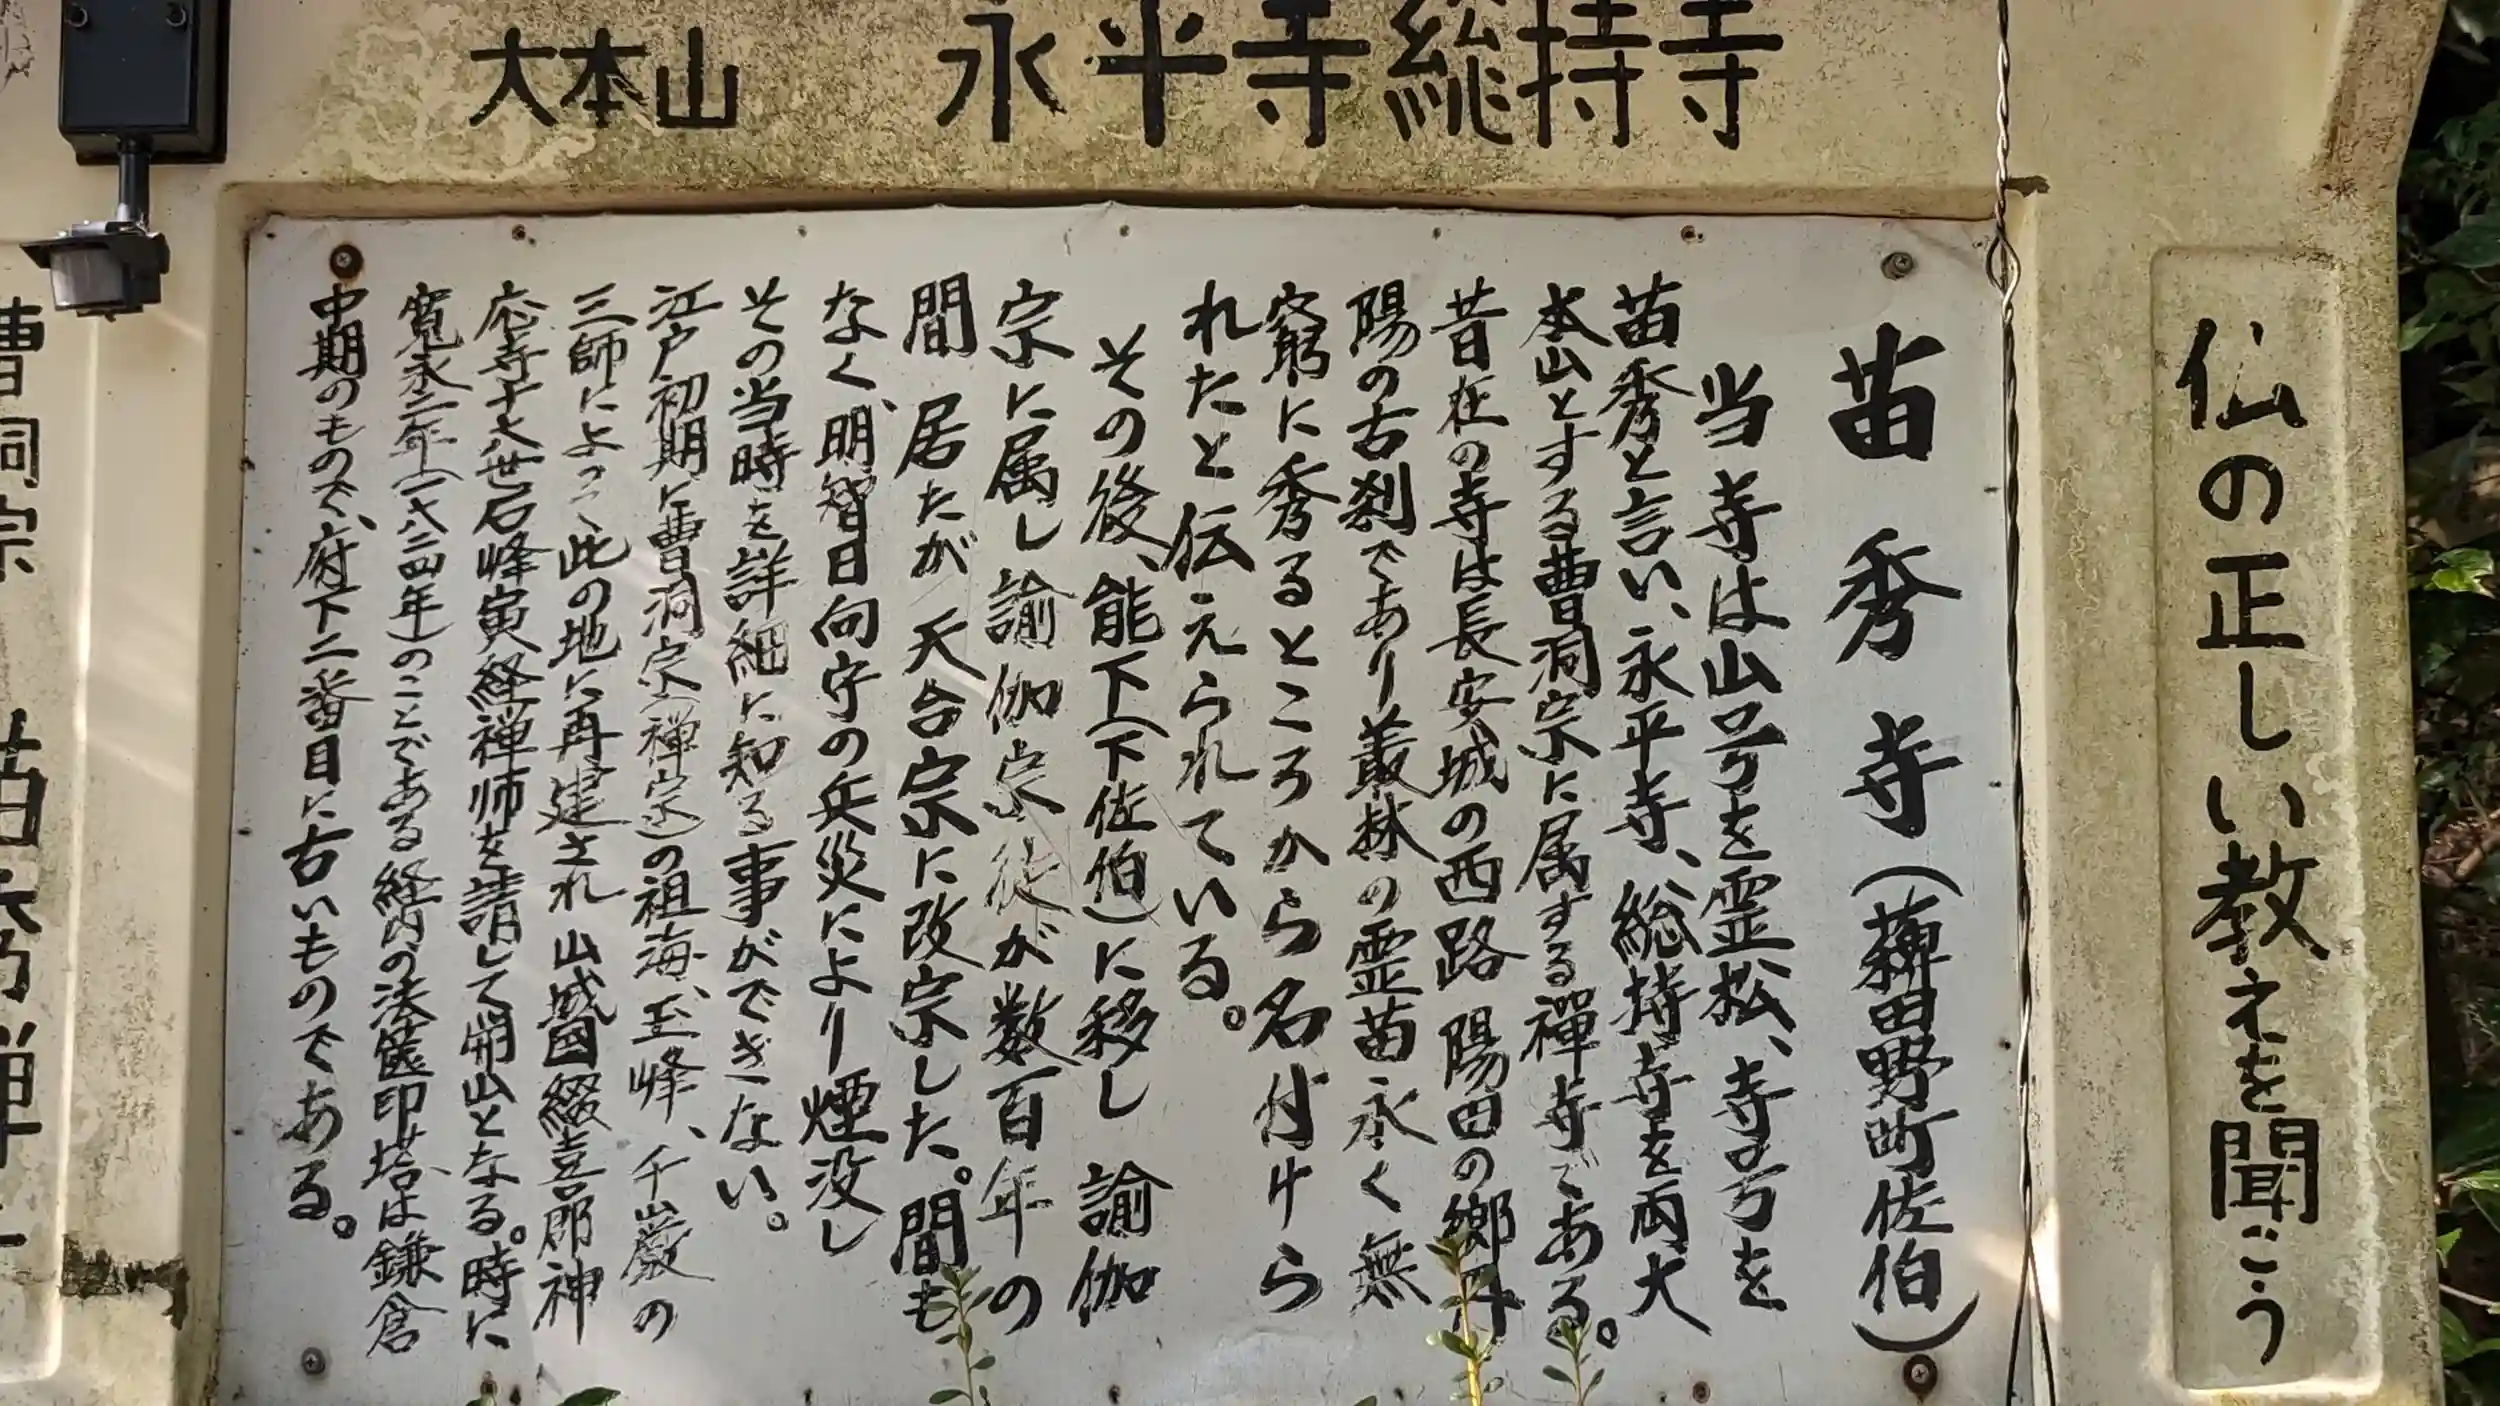 大本山　永平寺総持寺
仏の正しい教えを聞こう
苗秀寺（薭田野町佐伯）
当寺は山号を霊松、寺号を
苗秀と言い、永平寺、総持寺を両大
本山とする曹洞宗に属する禅寺である。
昔在の寺は長安城の西路陽田の郷丹
陽の古刹であり叢林の霊苗永く無
窮に秀るところから名付けら
れたと伝えられている。
その後、能下（下佐伯）に移し諭伽
宗に属し諭伽宗徒が数百年の
間居たが天台宗に改宗した。間も
なく、明智日向守の兵災により煙没し
その当時を詳細に知る事ができない。
江戸初期に曹洞宗（禅宗）の祖海、玉峰、千巌の
三師によって此の地に再建され山城国綴喜郡神
応寺十八世石峰寅経禅师を請して開山となる。時に
寛永二年（一六二四年）のことである経内の法篋印塔は鎌倉
中期のもので、府下二番目に古いものである。
曹洞宗　苗秀禅寺